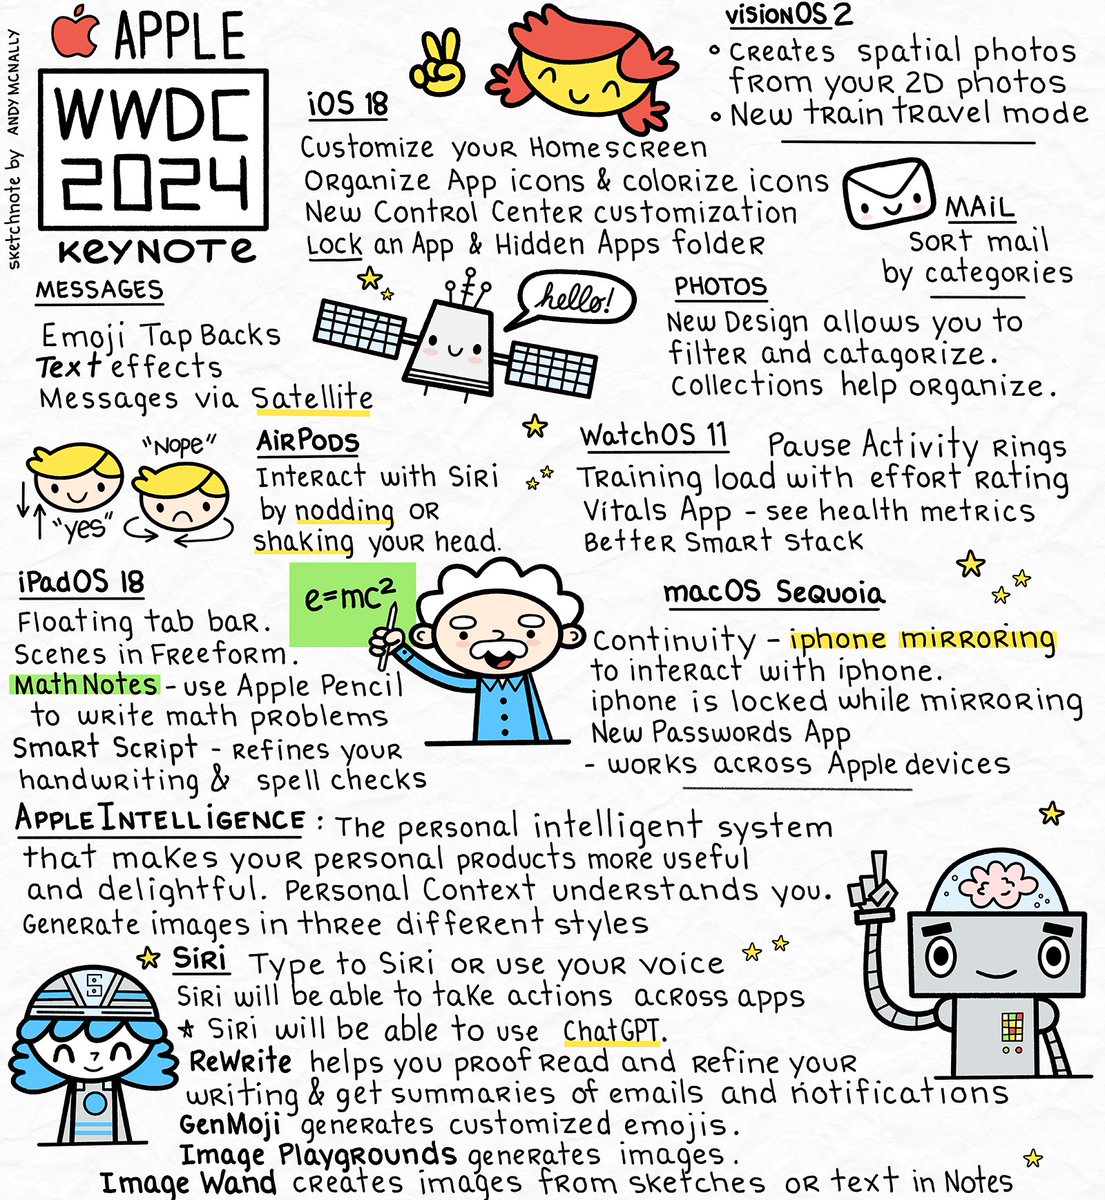 APPLE
WWDC
2024
KEYNOTE
sketchnote by ANDY MCNALLY
visionOS 2
Creates spatial photos
from your 2D photos
New train travel mode
iOS 18
Customize your Homescreen
Organize App icons & colorize icons
New Control Center customization
Lock an App & Hidden Apps folder
MAiL
Sort mail
by categories
MESSAGES
Emoji Tap Backs
Text effects
Messages via Satellite
hello!
PHOTOS
New Design allows you to
filter and catagorize.
Collections help organize.
"Nope"
"yes"
AirPODS
Interact with Siri
by nodding or
shaking your head.
WatchOS 11
Pause Activity rings
Training load with effort rating
Vitals App - see health metrics
Better Smart Stack
iPadOS 18
Floating tab bar.
Scenes in Freeform.
MathNotes - use Apple Pencil
to write math problems
Smart Script - refines your
handwriting & spell checks
e=mc²
macOS Sequoia
Continuity - iphone mirroring
to interact with iphone.
iphone is locked while mirroring
New Passwords App
- works across Apple devices
APPLE INTELLIGENCE : The personal intelligent system
that makes your personal products more useful
and delightful. Personal Context understands you.
Generate images in three different styles
Siri Type to Siri or use your voice
Siri will be able to take actions across apps
* Siri will be able to use ChatGPT.
ReWrite helps you proofread and refine your
writing & get summaries of emails and notifications
GenMoji generates customized emojis.
Image Playgrounds generates images.
Image Wand creates images from sketches or text in Notes